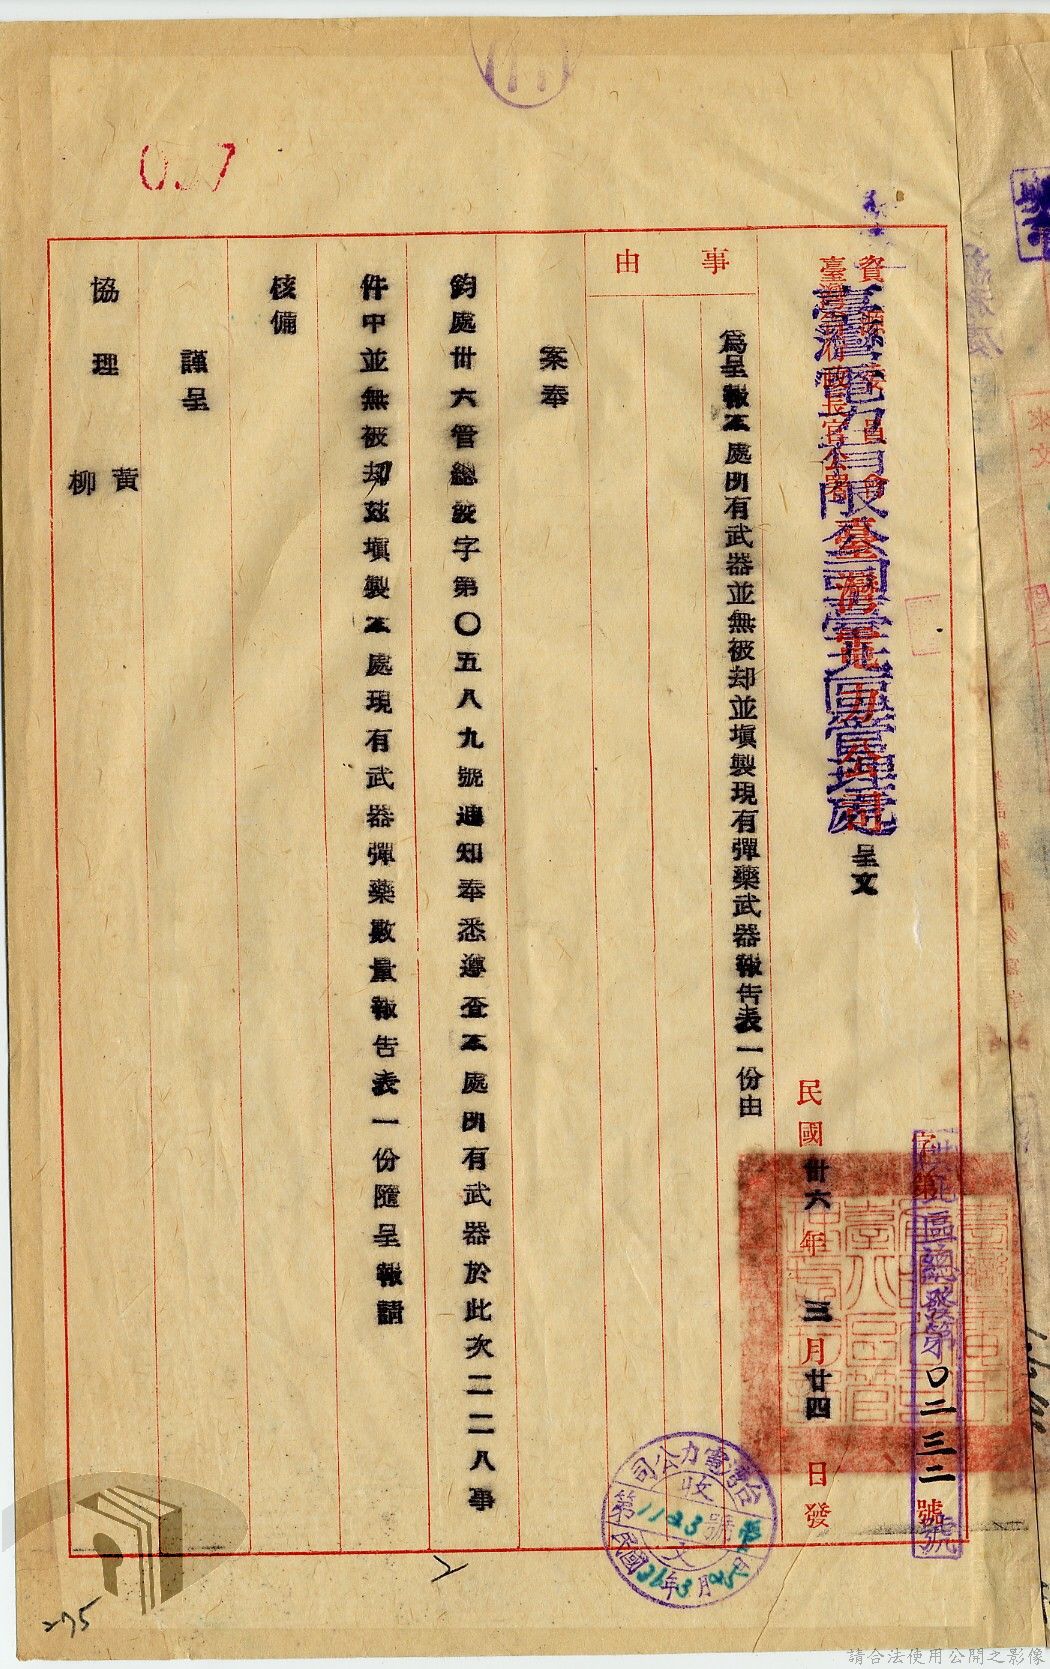 資源委員會
臺灣省行政長官公署
臺灣電力公司
臺灣電力有限公司臺北區管理處
呈文
字第
區總發第〇二三二號
民國卅六年三月廿四日發
事由
為呈報本處所有武器並無被却並塡製現有彈藥武器報告表一份由
案奉
鈞處卅六管總發字第〇五八九號通知奉悉遵查本處所有武器於此次二二八事
件中並無被却茲塡製本處現有武器彈藥數量報告表一份隨呈報請
核備
謹呈
協理
黃
柳
台灣電力公司
收文
第1123號
民國36年3月25日
275
請合法使用公開之影像